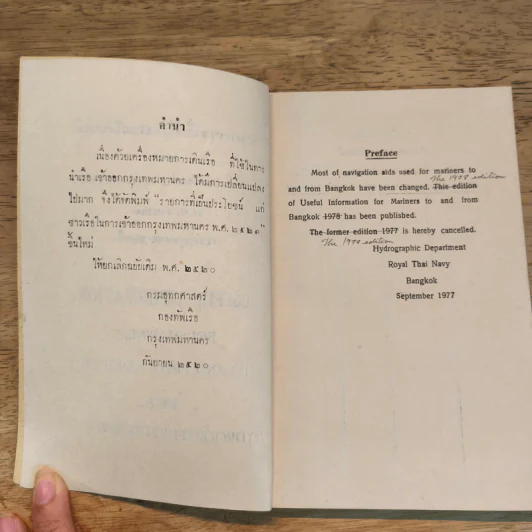 คำนำ
เนื่องด้วยเครื่องหมายการเดินเรือ ที่ใช้ในทาง
นำเรือ เข้าออกกรุงเทพมหานคร ได้มีการเปลี่ยนแปลง
ไปมาก จึงได้จัดพิมพ์ "รายการที่เป็นประโยชน์ แก่
ชาวเรือในการเข้าออกกรุงเทพมหานคร พ.ศ. ๒๕๒๑"
ขึ้นใหม่
ให้ยกเลิกฉบับเดิม พ.ศ. ๒๕๒๐
กรมอุทกศาสตร์
กองทัพเรือ
กรุงเทพมหานคร
กันยายน ๒๕๒๐
Preface
Most of navigation aids used for mariners to
The 1978 edition
and from Bangkok have been changed. This edition
of Useful Information for Mariners to and from
Bangkok 1978 has been published.
The former edition 1977 is hereby cancelled.
Hydrographic Department
Royal Thai Navy
Bangkok
September 1977